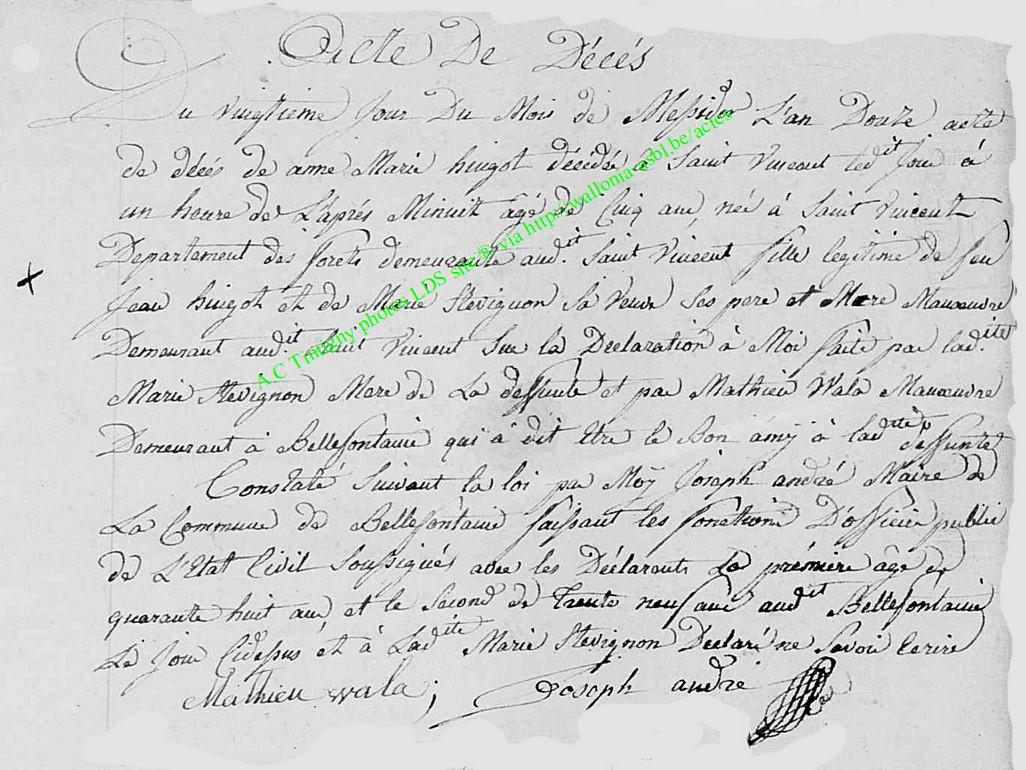 Acte De Décés
Du vingtieme Jour Du Mois de Messidor L'an Douze acte
de décés de anne Marie hugot décédée à Saint Vincent ledit Jour à
un heure de L'aprés Minuit âgé de Cinq ans née à Saint Vincent
Departement des forets demeurante audit Saint Vincent fille legitime de feu
Jean hugot et de Marie Stevignon Sa Veuve Ses pere et Mere Manœuvre
Demeurant audit Saint Vincent Sur la Declaration à Moi faite par ladite
Marie Stevignon Mere de La deffunte et par Mathieu Wala Manœuvre
Demeurant à Bellefontaine qui à dit Etre le Bon amÿ à ladite deffunte
Constaté Suivant la loi par Moÿ Joseph andré Maire de
La Commune de Bellefontaine faissant les fonctions D'officier public
de L'Etat Civil Soussignés avec les Déclarants La prémiere âgé de
quarante huit ans, et le Second de trente neuf ans audit Bellefontaine
Le Jour Cidessus et à Ladite Marie Stevignon Declaré ne Savoir Ecrire
Mathieu wala ; Joseph andré
A C Tintigny photos LDS site® via http//wallonia-asbl.be/actes